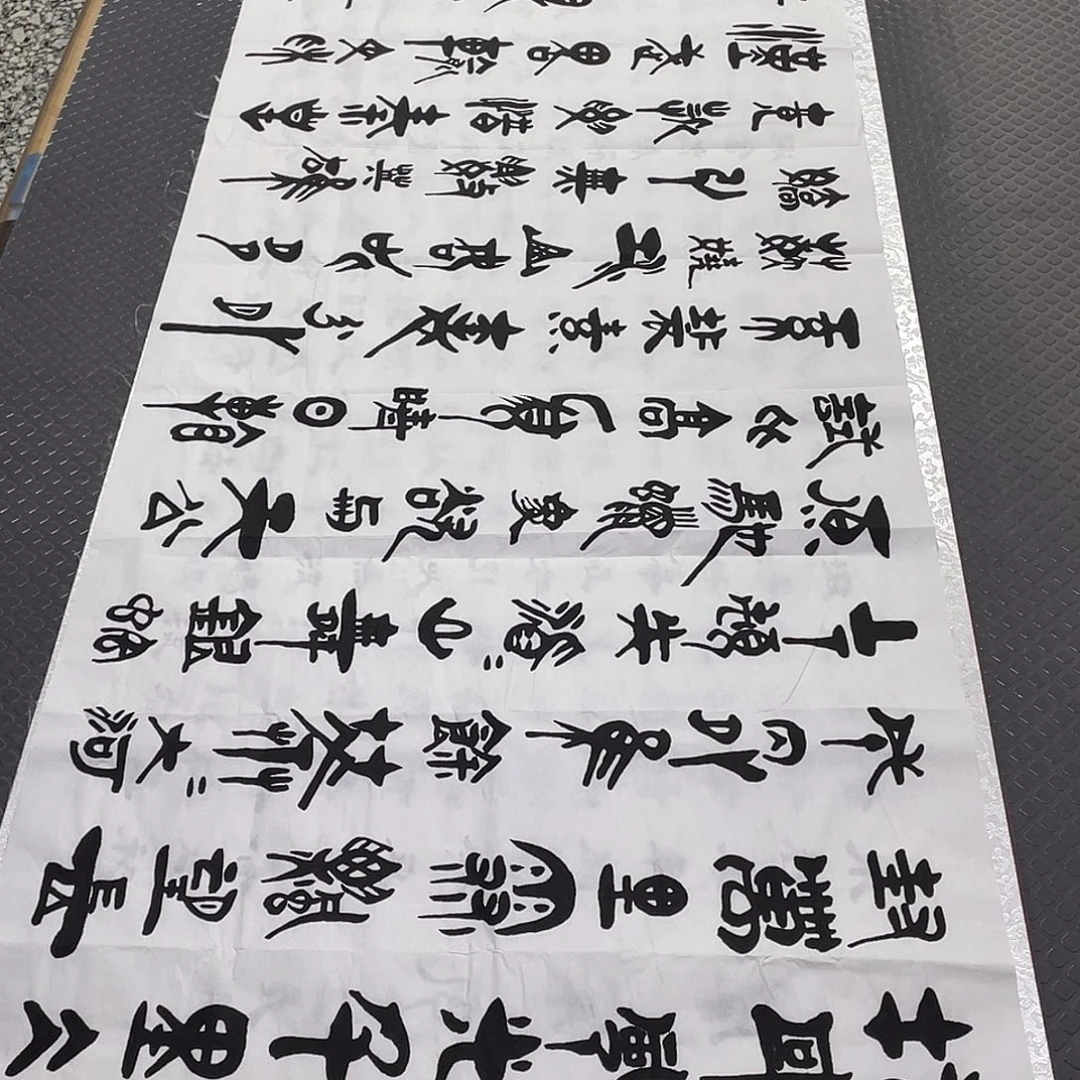 北國風光千里冰
封萬里雪飄望長
城内外惟餘莽〻大河
上下頓失滔〻山舞銀蛇
原馳蠟象欲與天公
試比高須晴日看
紅裝素裹分外
妖嬈江山如此多
嬌引無數英雄
競折腰惜秦皇
漢武略輸文采